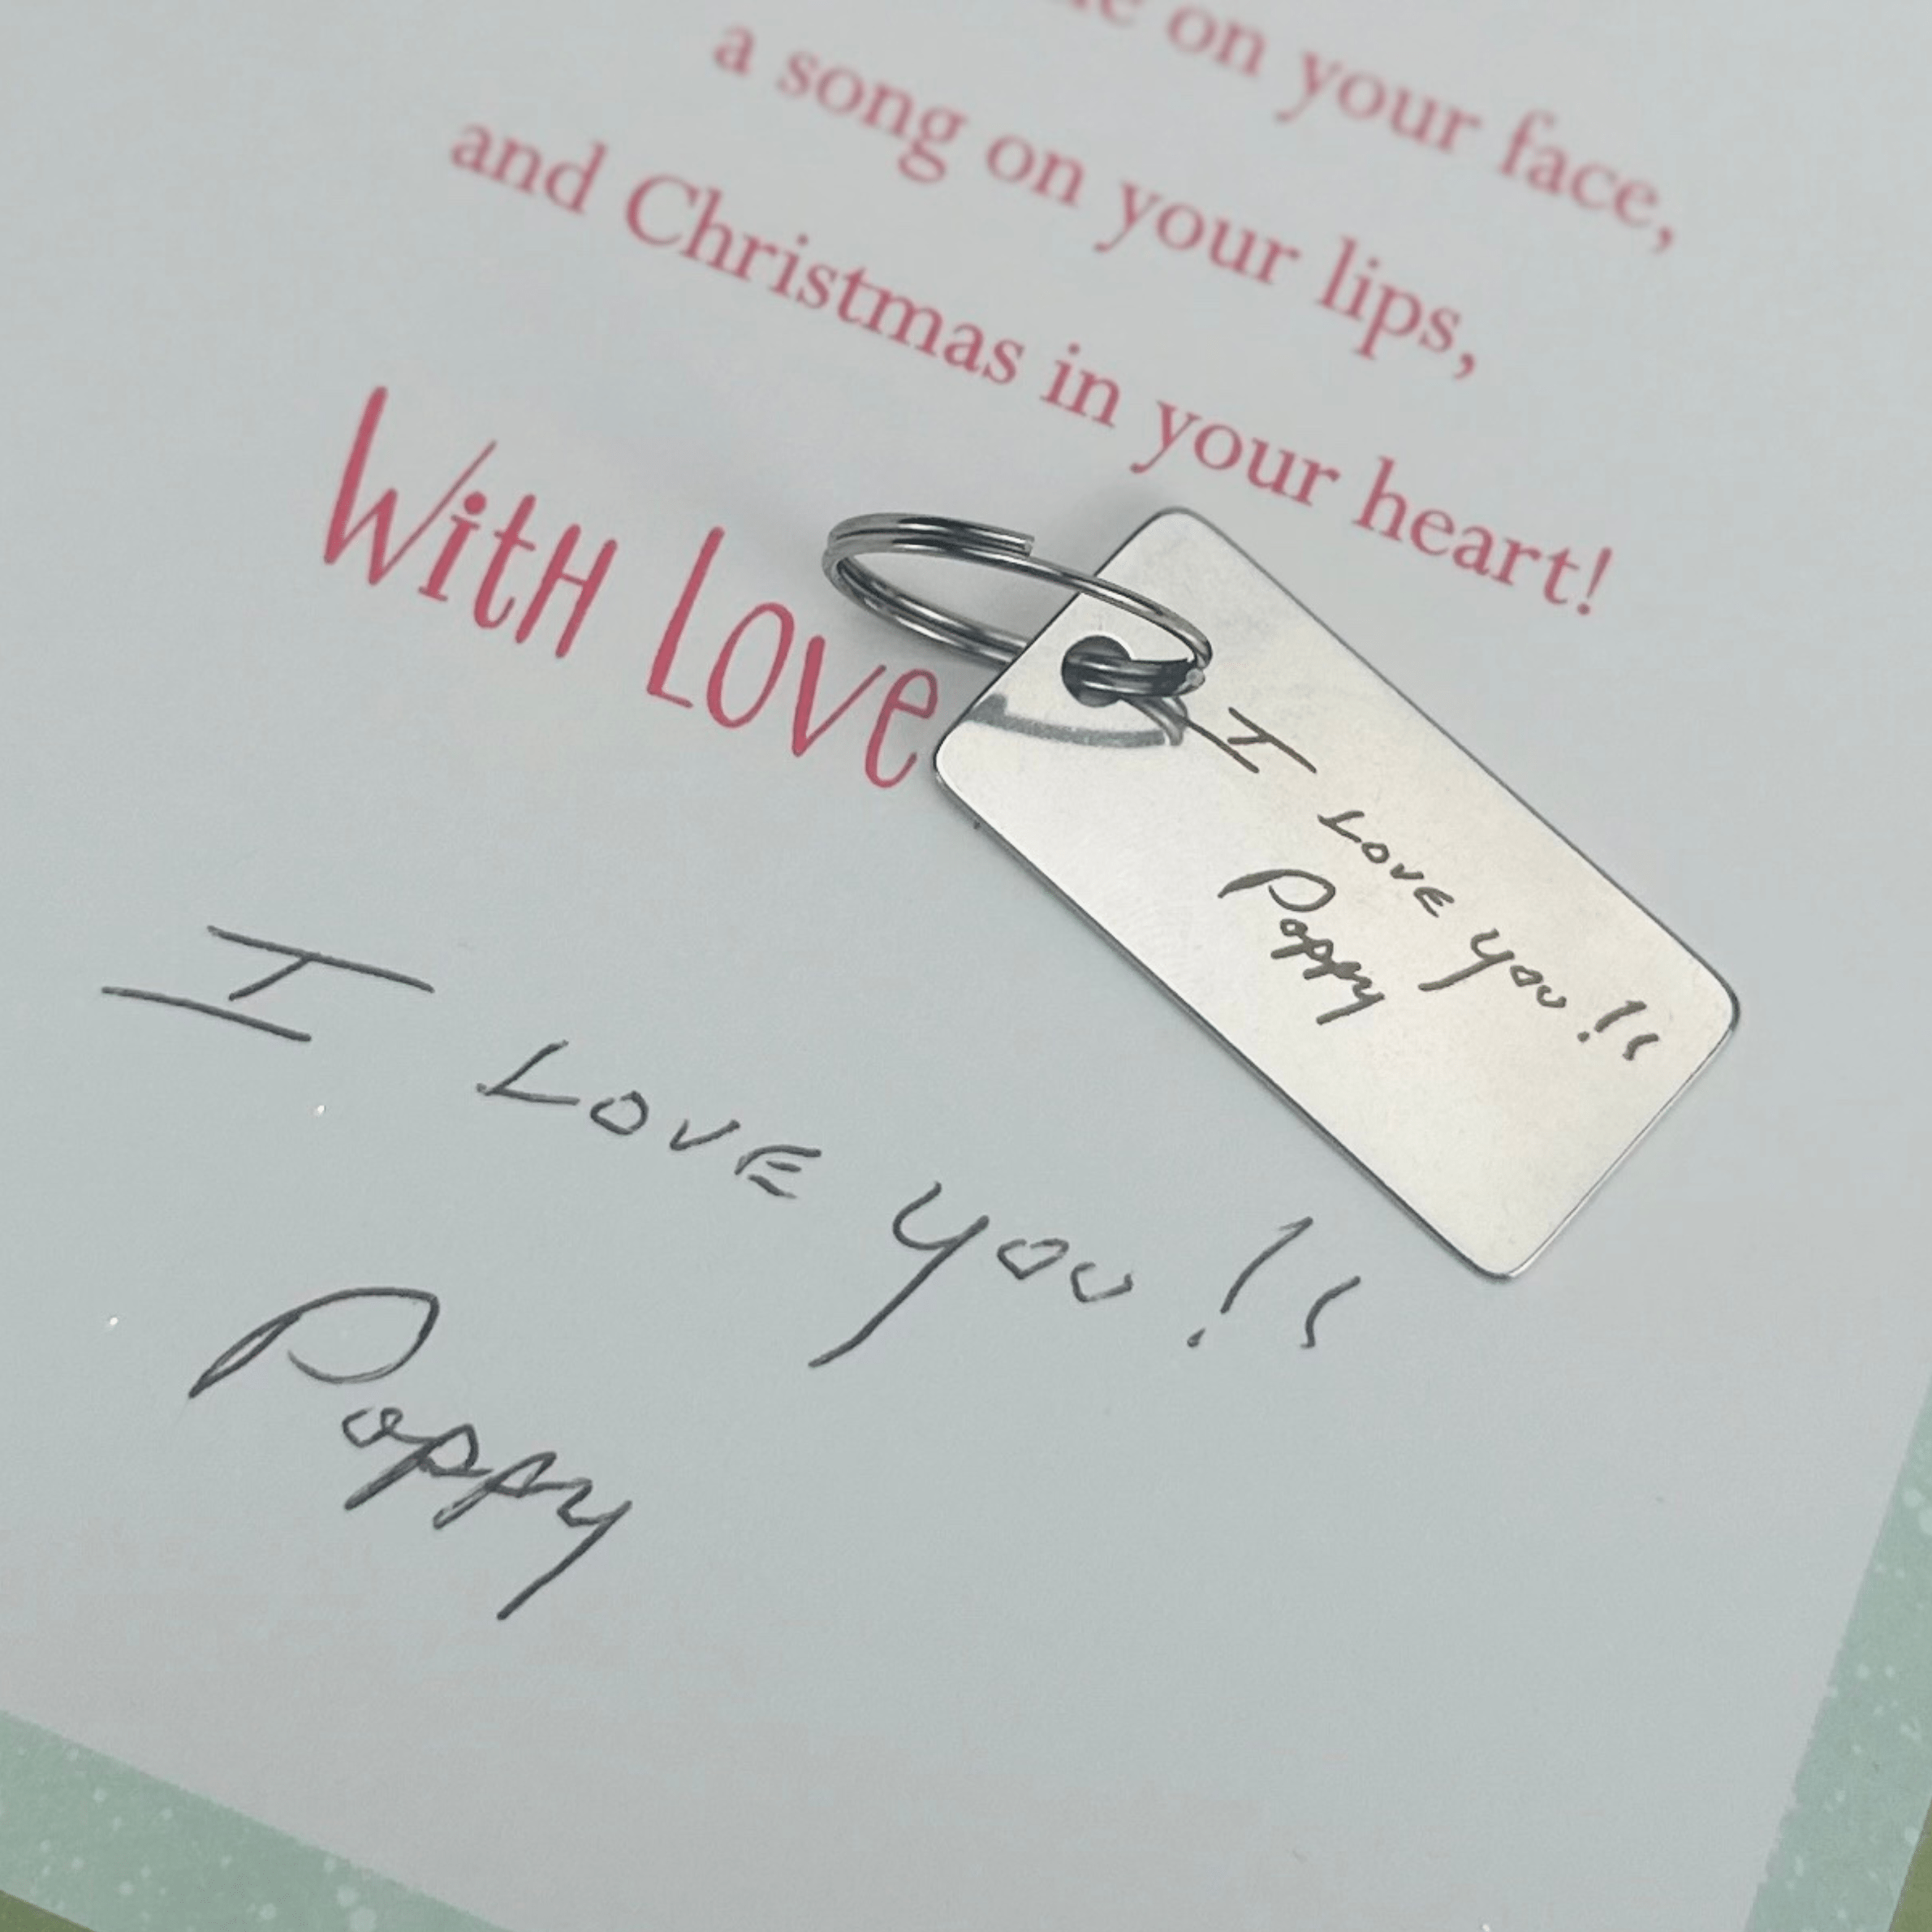 on your face,
a song on your lips,
and Christmas in your heart!
With Love
I LOVE you!!
Poppy
I LOVE you!!
Poppy